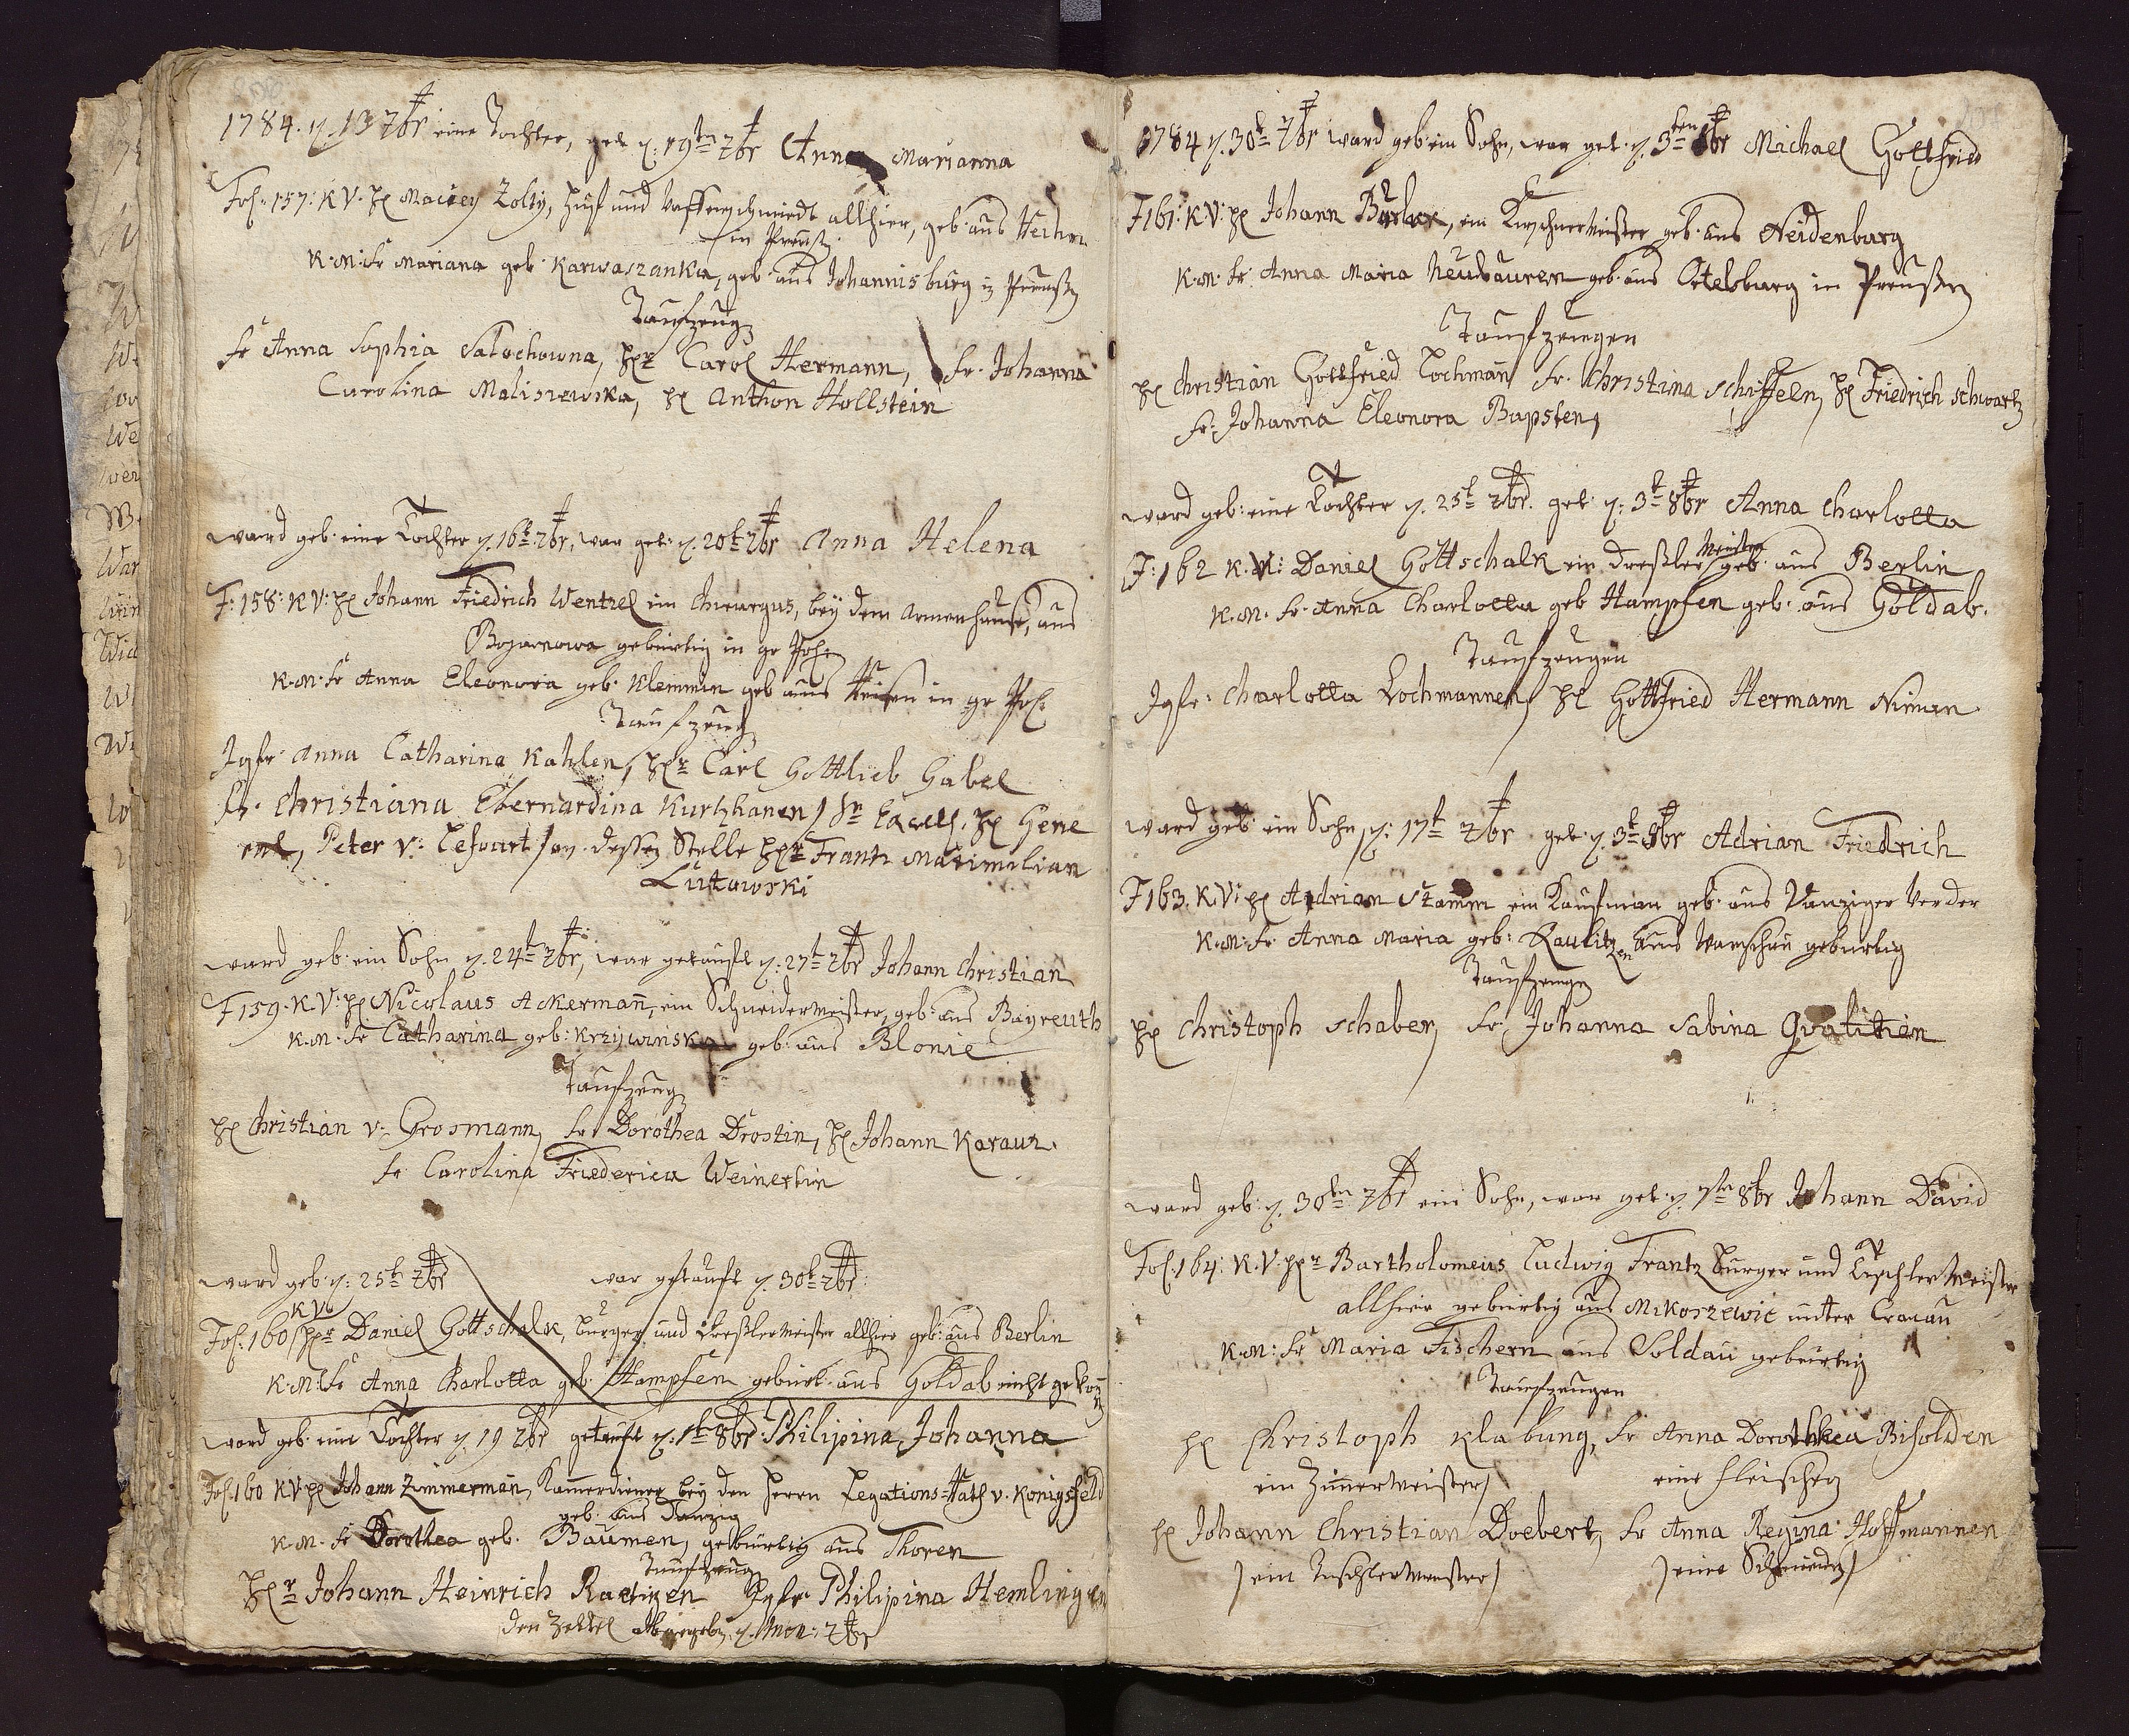 1784. d. 13 7br eine Tochter, get d: 19ten 7br Anna Marianna
Fol: 157: K V. H Maciey Zolty, Huf und Waffenschmiedt allhier, geb: aus
in Preuß
K. M: Fr Mariana geb. Karwaszanka, geb. aus Johannisburg in Preußen
Taufzeug
Fr Anna Sophia Salochowna, Hr Carol Hermann, Fr. Johanna
Carolina Maliszewska, H Anthon Hollstein
ward geb. eine Tochter d. 16t 7br, war get: d. 20t 7br Anna Helena
F: 158: K V: H Johann Friedrich Wentzel ein Chirurgus, bey dem Armenhause, aus
Bojanowa gebürtig in gr Pohlen
K. M. Fr Anna Eleonora geb. Klemmin geb aus Reisen in gr Pol.
Taufzeug
Jgfr. Anna Catharina Kahlen, Hr Carl Gottlieb Gabel
Fr. Christiana Ebernardina Kurtzhanen, Sr Excell. H Gene
ral, Peter v: Lefuart / an dessen Stelle Hr Frantz Maximilian
Lutowski
ward geb. ein Sohn d. 24t 7br, war getauft d: 27t 7br Johann Christian
F 159. K V. H Nicolaus Ackermañ, ein Schneidermeister, geb: aus Bayreuth
K. M. Fr Catharina geb: Krzywinska geb. aus Blonie
Taufzeug
H Christian v. Grosmann, Fr. Dorothea Drostin, H Johann Karauz.
Fr Carolina Friederica Weinertin
ward geb. d: 25t 7br war getauft d. 30t 7br:
KV
Fol. 160 Hr Daniel Gottschalk, bürger und Dreßlermeister allhier geb: aus Berlin
K. M. Fr Anna Charlotta geb. Hampfen gebürt. aus Goldab nicht gekom
ward geb. eine Tochter d 19 7br getauft d: 1t 8br. Philipina Johanna
Fol. 160 K V H Johann Zimmermañ, Kamerdiener bey den Herrn Legations-Rath v. Konigsfeld
geb. aus Danzig
K. M. Fr Dorothea geb. Baumen, gebürtig aus Thoren
Taufzeug
Hr Johann Heinrich Raetizen Jgfr Philipina Hemlingen
den Zettel abgegeb. d. 7br
1784 d. 30t 7br ward geb ein Sohn, war get. d. 3ten 8br Michael Gottfried
F 161: K V: H Johann Burker, ein Kirschnermeister geb. aus Neidenburg
K. M. Fr. Anna Maria Neubauren geb. aus Ortelsburg in Preußen
Taufzeugen
H Christian Gottfried Lochmañ Fr. Christina Schiffeln, H Friedrich Schwartz
Fr. Johanna Eleonora Bapsten,
ward geb: eine Tochter d. 25t 7br. get d: 3t 8br Anna Charlotta
Meister
F: 162 K. V: Daniel Gottschalk ein Dreßler geb. aus Berlin
K. M. Fr. Anna Charlotta geb Hampfen geb. aus Goldab.
Taufzeugen
Jgfr: Charlotta Lochmannen, H Gottfried Hermann Niman
ward geb ein Sohn, d: 17t 7br get. d. 3t 8br Adrian Friedrich
F 163. K. V: H Andrian Stamm ein Kaufman geb. aus Danziger Verder
K. M: Fr. Anna Maria geb: Raulitzen aus Warschau gebürtig
Taufzeuge
H Christoph Schaber, Fr. Johanna Sabina Qvalitien
ward geb: d. 30ten 7br ein Sohn, war get. d. 7ten 8br Johann David
Fol. 164: K. V. Hr Bartholomeus Ludwig Frantz Bürger und Tischlermeister
allhier gebürtig aus Mikorzewic unter Cracau
K. M: Fr Maria Fischern aus Soldau gebürtig
Taufzeugen
H Christoph Klabung, Fr Anna Dorothea Bisolden
ein Zimermeister eine Fleischerin
H Johann Christian Doebert, Fr Anna Regina Hoffmannen
ein Tischlermeister eine Schneiderin